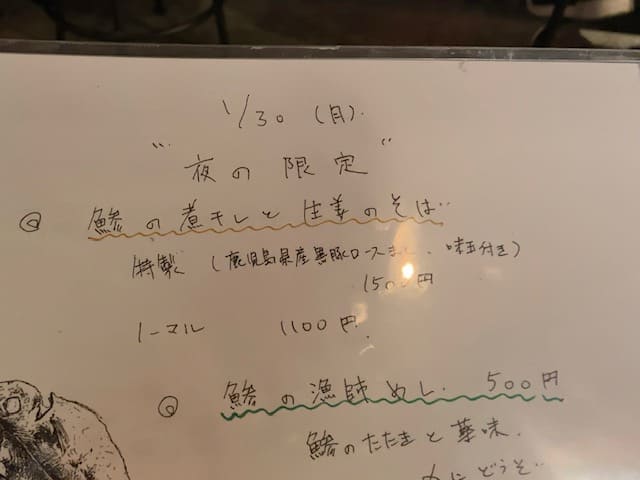 1/30 (月).
"夜の限定"
◎ 鯵の煮干しと生姜のそば‥
特製 (鹿児島県産黒豚ロース 味玉付き)
1500円
ノーマル 1100円.
◎ 鯵の漁師めし. 500円
鯵のたたきと薬味.
にどうぞ‥